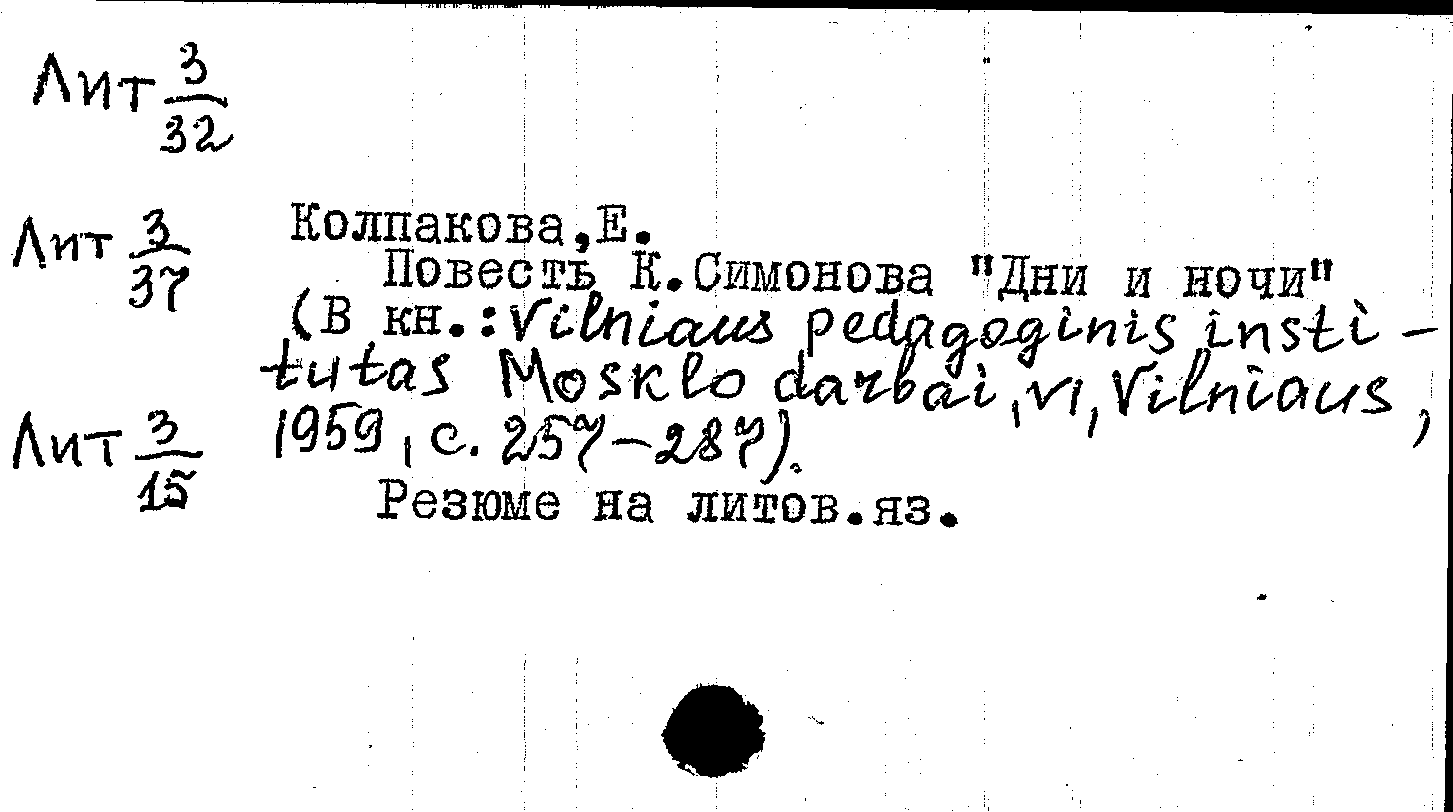 Лит 3/32
Лит 3/37
Колпакова,Е.
Повесть К.Симонова "Дни и ночи"
(В кн.: Vilniaus pedagoginis insti-
tutas Mosklo darbai, VI, Vilniaus,
Лит 3/15
1959, с. 257-287).
Резюме на литов.яз.